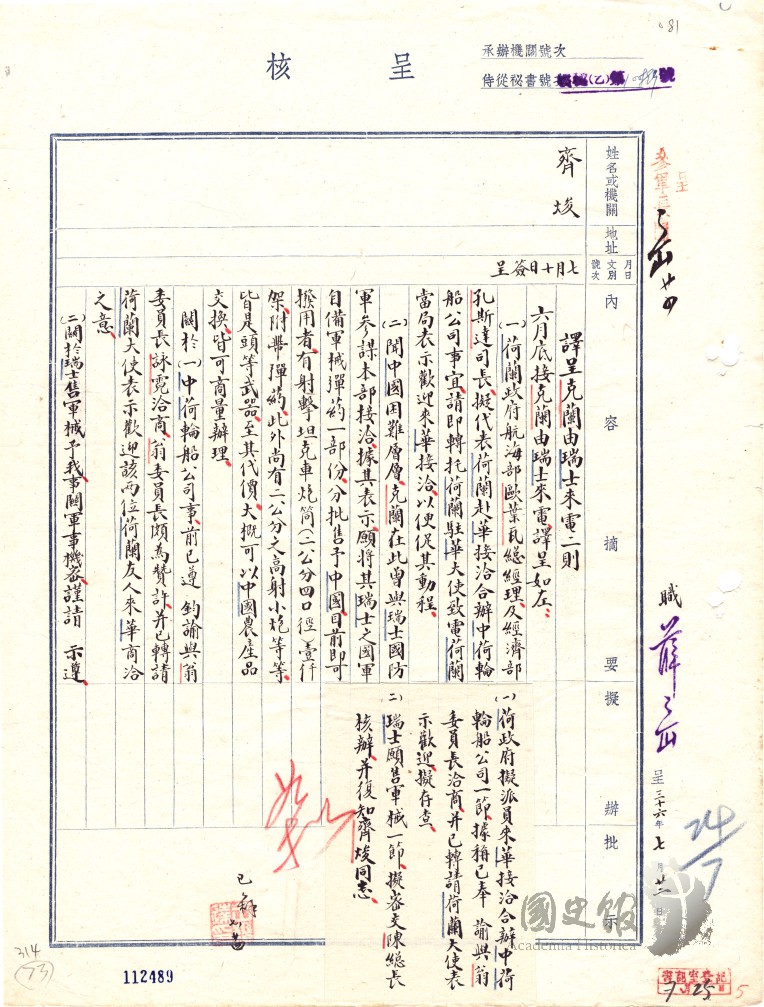 呈核
承辦機關號次
侍從祕書號次
號
姓名或機關
地址
月日
文別
號次
內容摘要
擬辦
批示
齊焌
七月十日簽呈
譯呈克蘭由瑞士來電二則
六月底接克蘭由瑞士來電譯呈如左：
(一)荷蘭政府航海部歐葉瓦總經理、及經濟部
孔斯達司長、擬代表荷蘭赴華接洽合辦中荷輪
船公司事宜、請即轉托荷蘭駐華大使致電荷蘭
當局表示歡迎來華接洽、以便促其動程、
(二)聞中國困難層層、克蘭在此曾與瑞士國防
軍參謀本部接洽、據其表示願將其瑞士之國軍
自備軍械彈葯一部份、分批售予中國、目前即可
撥用者、有射擊坦克車炮筒(二公分四口徑)壹仟
架、附帶彈葯、此外尚有二公分之高射小炮等等、
皆是頭等武器、至其代價、大概可以中國農產品
交換、皆可商量辦理、
關於(一)中荷輪船公司事、前已遵 鈞諭與翁
委員長詠霓洽商、翁委員長頗為贊許、并已轉請
荷蘭大使表示歡迎該兩位荷蘭友人來華商洽
之意、
(二)關於瑞士售軍械予我事關軍事機密謹請 示遵
(一)荷政府擬派員來華接洽合辦中荷
輪船公司一節、據稱已奉 諭與翁
委員長洽商、并已轉請荷蘭大使表
示歡迎、擬存查、
(二)瑞士願售軍械一節、擬密交陳總長
核辦、并復知齊焌同志、
職 薛
呈 三十六年七月廿二日
國史館
Academia Historica
112489
314
(73)
081
24/7
7 25
5